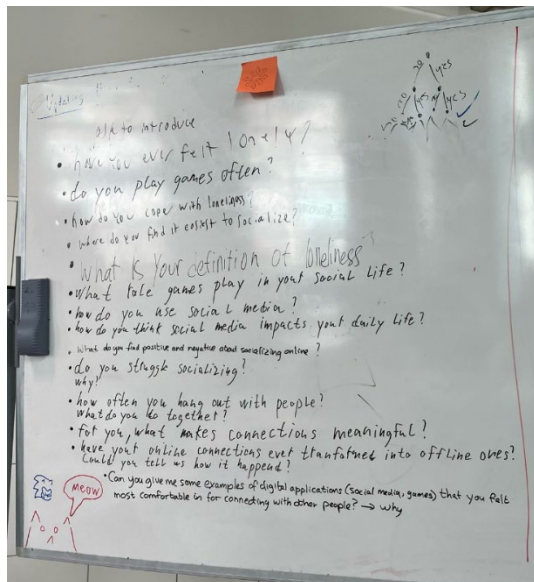 ask to introduce
• have you ever felt lonely?
• do you play games often?
• how do you cope with loneliness?
• where do you find it easiest to socialize?
• What is Your definition of loneliness?
• What role games play in your social life?
• how do you use social media?
• how do you think social media impacts your daily life?
• What do you find positive and negative about socializing online?
• do you struggle socializing?
why?
• how often you hang out with people?
What do you do together?
• for you, what makes connections meaningful?
• have your online connections ever transformed into offline ones?
Could you tell us how it happend?
• Can you give me some examples of digital applications (social media, games) that you felt
most comfortable in for connecting with other people? → why
MEOW
no yes
no yes yes
no